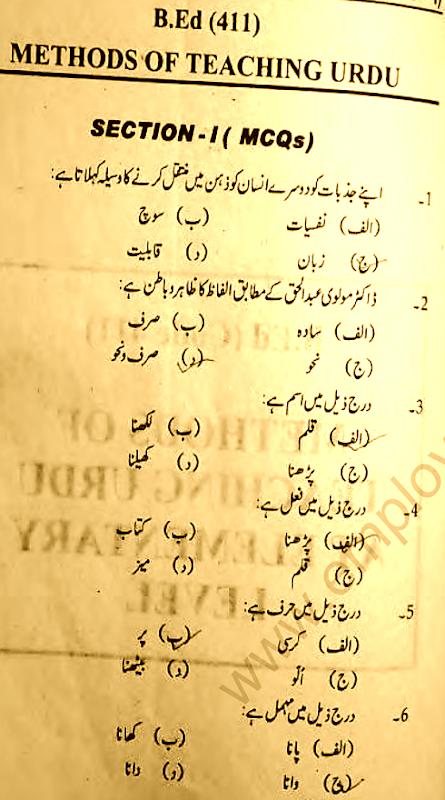 B.Ed (411)
METHODS OF TEACHING URDU
SECTION - I ( MCQs)
1۔ اپنے جذبات کو دوسرے انسان کو ذہن میں منتقل کرنے کا وسیلہ کہلاتا ہے:
(الف) نفسیات (ب) سوچ
(ج) زبان (د) قابلیت
2۔ ڈاکٹر مولوی عبدالحق کے مطابق الفاظ کا ظاہر و باطن ہے:
(الف) سادہ (ب) صرف
(ج) نحو (د) صرف و نحو
3۔ درج ذیل میں اسم ہے:
(الف) قلم (ب) لکھنا
(ج) پڑھنا (د) کھیلنا
4۔ درج ذیل میں فعل ہے:
(الف) پڑھنا (ب) کتاب
(ج) قلم (د) میز
5۔ درج ذیل میں حرف ہے:
(الف) کرسی (ب) پر
(ج) اُلّو (د) بیٹھنا
6۔ درج ذیل میں مہمل ہے:
(الف) پانا (ب) کھانا
(ج) وانا (د) دانا